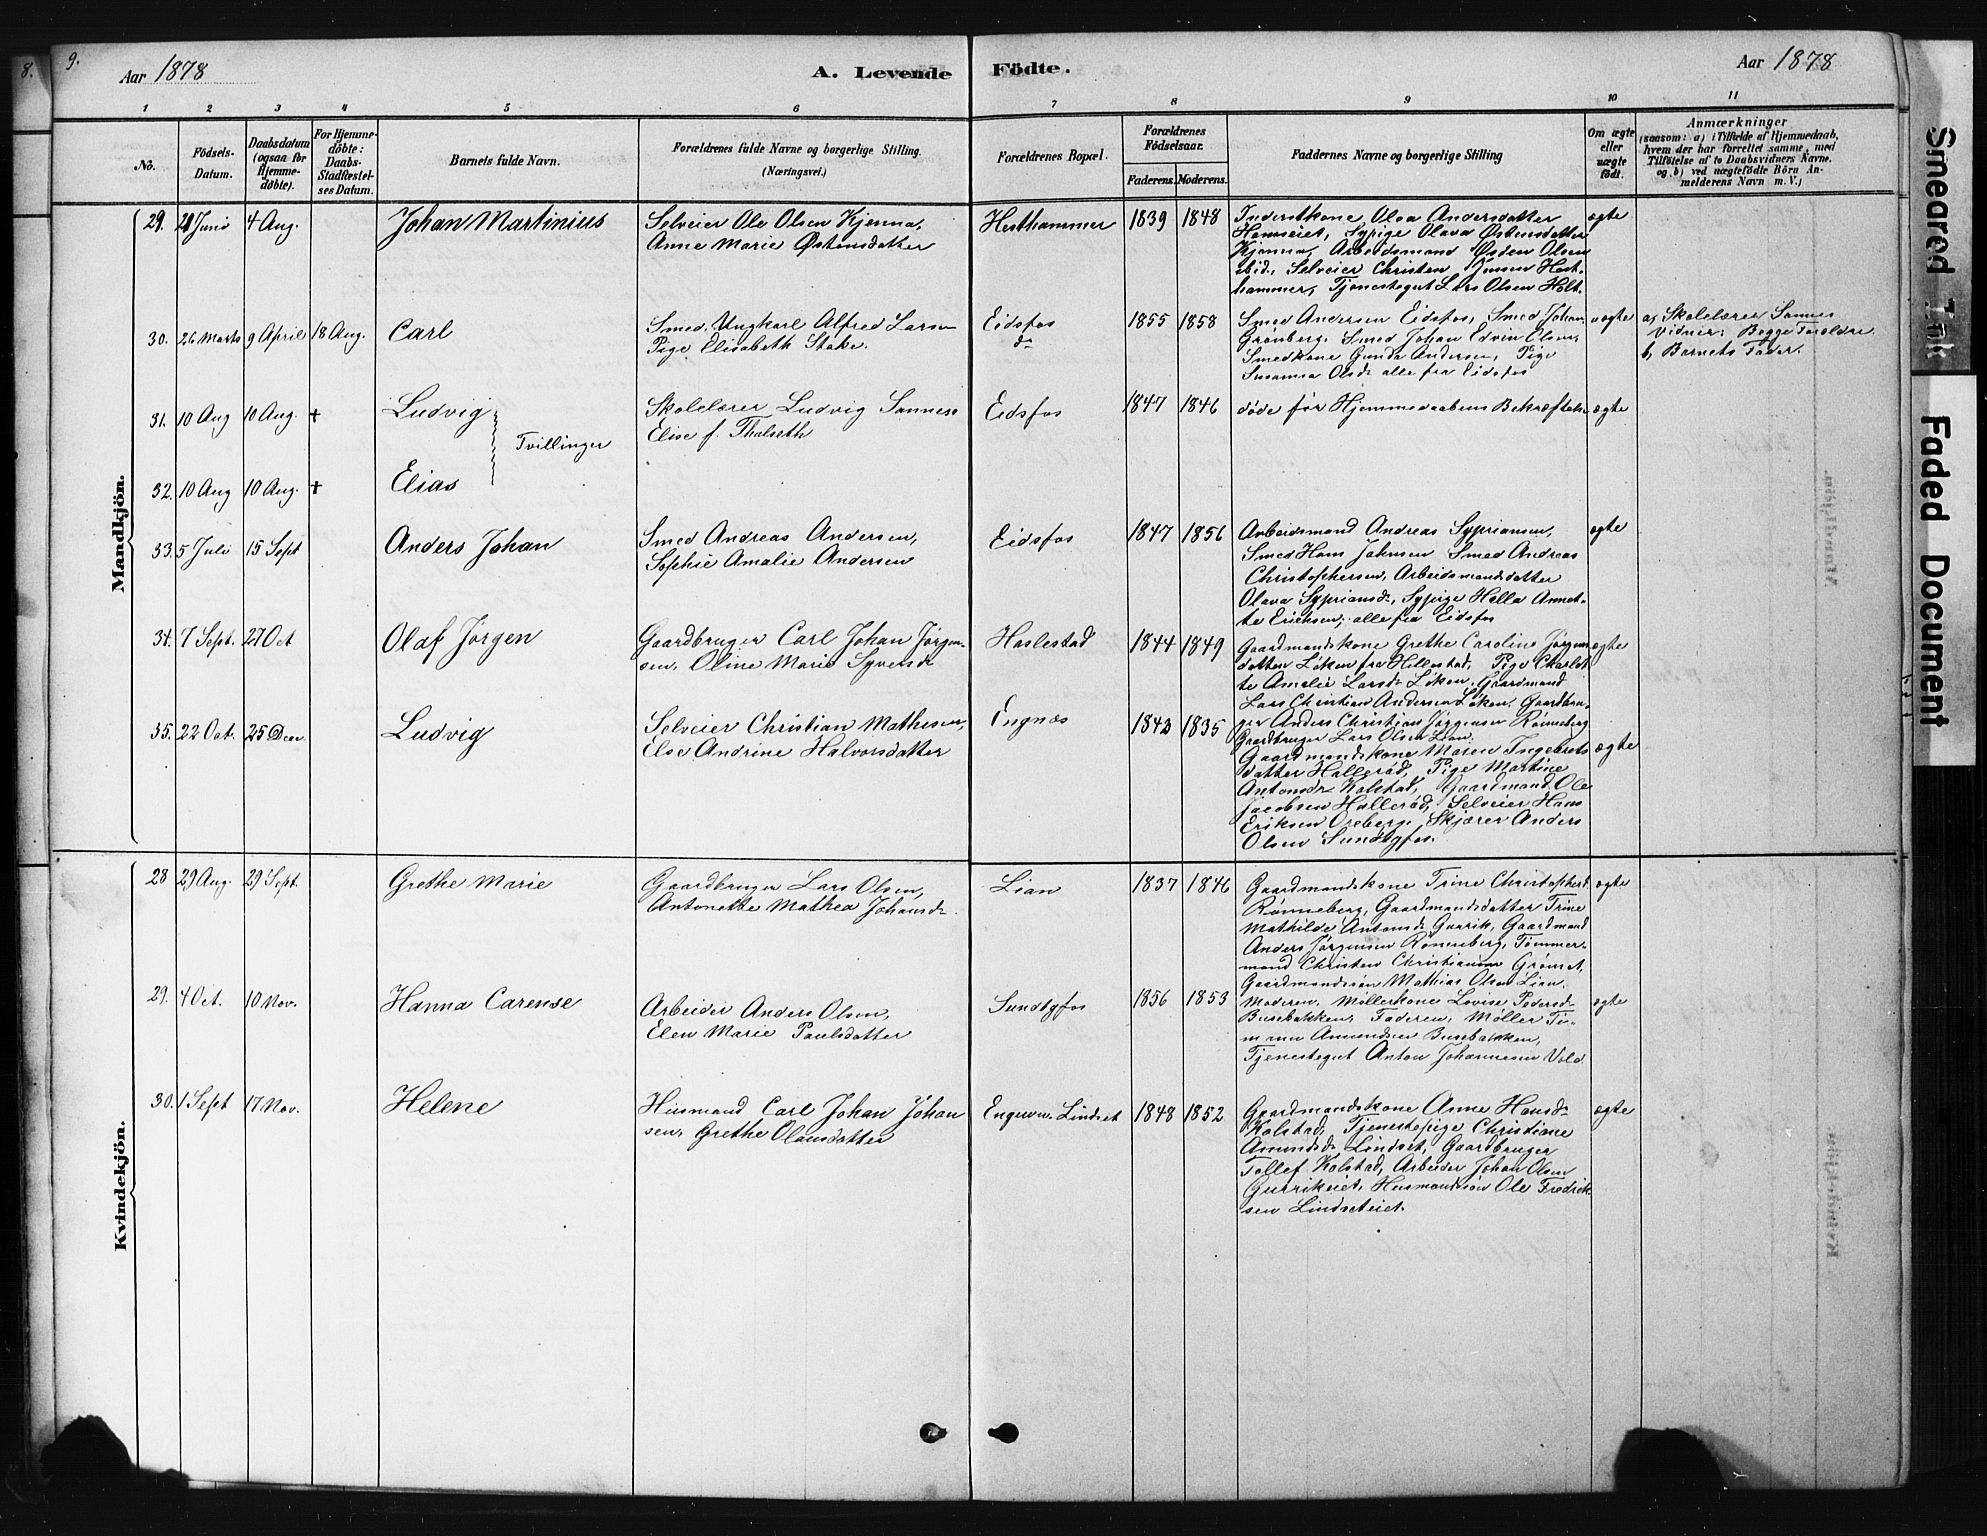 8.
9.
Aar 1878
A. Levende Födte.
Aar 1878
1 2 3 4 5 6 7 8 9 10 11
No.
Födsels-Datum.
Daabsdatum (ogsaa for Hjemme-döbte).
For Hjemme-döbte: Daabs-Stadfæstel-ses Datum.
Barnets fulde Navn.
Forældrenes fulde Navne og borgerlige Stilling. (Næringsvei.)
Forældrenes Bopæl.
Forældrenes Födselsaar.
Faderens. Moderens.
Faddernes Navne og borgerlige Stilling
Om ægte eller uægte födt.
Anmærkninger
(saasom: a) i Tilfælde af Hjemmedaab, hvem der har forrettet samme, med Tilföielse af to Daabsvidners Navne. og b) ved uægtefödte Börn An-melderens Navn m. V.)
Mandkjön.
29. 20 Juni 4 Aug. Johan Martinius
Selveier Ole Olsen Kjenna,
Anne Marie Østensdatter
Hesthammer 1839 1848
Inderstkone Olea Andersdatter
Hanseiet, Sypige Olava Østensdatter
Kjenna, Arbeidsmand Østen Olsen
ibid, Selveier Christen Jensen Hest-
hammer, Tjenestegut Lars Olsen Holt.
ægte
30. 26 Marts 9 April 18 Aug. Carl
Smed, Ungkarl Alfred Larsen
Pige Elisabeth Stake.
Eidsfos
do
1855 1858
Smed Andersen Eidsfos, Smed Johan
Grønberg. Smed Johan Edvin Olsen,
Smedkone Gunda Andersen, Pige
Susanna Olsdr alle fra Eidsfos
uægte
a, Skolelærer Sannes
Vidner: Begge Foreldre.
b, Barnets Fader.
31. 10 Aug 10 Aug. + Ludvig
Tvillinger
Skolelærer Ludvig Sannes
Elise f. Thalseth
Eidsfos 1847 1846
døde før Hjemmedaabens Bekræftelse
ægte
32. 10 Aug 10 Aug. + Elias
33. 5 Juli 15 Sept Anders Johan
Smed Andreas Andersen,
Sophie Amalie Andersen
Eidsfos 1847 1856
Arbeidsmand Andreas Sypriansen,
Smed Hans Jahnsen Smed Andreas
Christophersen, Arbeidsmandsdatter
Olava Sypriansdr, Sypige Hella Annet-
te Eriksen; alle fra Eidsfos
ægte
34. 7 Sept. 27 Oct Olaf Jørgen
Gaardbruger Carl Johan Jørgen-
sen, Oline Marie Syversdr
Haslestad 1844 1849
Gaardmandskone Grethe Caroline Jørgens
datter Løken fra Hillestad, Pige Charlot-
te Amalie Larsdr Løken, Gaardmand
Lars Christian Andersen Løken, Gaardbru-
ger Anders Christian Jørgensen Rønneberg
Gaardbruger Lars Olsen Lian.
ægte
35. 22 Oct. 25 Decr. Ludvig
Selveier Christian Mathisen,
Else Andrine Halvorsdatter
Engnæs 1843 1835
Gaardmandskone Maren Ingebrets
datter Hallerød, Pige Martine
Antonsdr Kolstad, Gaardmand Ole
Jacobsen Hallerød, Selveier Hans
Eriksen Oreberg, Skjærer Anders
Olsen Sundbyfos.
ægte
Kvindekjön.
28 29 Aug. 29 Sept. Grethe Marie
Gaardbruger Lars Olsen,
Antonette Mathea Johansdr.
Lian 1837 1846
Gaardmandskone Trine Christophersd
Rønneberg, Gaardmandsdatter Trine
Mathilde Antonsdr Gurrik, Gaardmand
Anders Jørgensen Rønneberg, Tømmer-
mand Christen Christiansen Grønset,
Gaardmandssøn Mathias Olsen Lian.
ægte
29. 4 Oct. 10 Nov. Hanna Carense
Arbeider Anders Olsen,
Elen Marie Paulsdatter
Sundbyfos 1856 1853
Moderen, Møllerkone Lovise Pedersdr
Busebakken, Faderen, Møller Ti-
mann Amundsen Busebakken,
Tjenestegut Anton Johannesen Vold
ægte
30. 1 Sept 17 Nov. Helene
Husmand Carl Johan Johan
sen, Grethe Olausdatter
Engeveien Lindset 1848 1852
Gaardmandskone Anne Hansdr
Kolstad, Tjenestepige Christiane
Amundsdr Lindset, Gaardbruger
Tollef Kolstad, Arbeider Johan Olsen
Gurrikeiet, Husmandssøn Ole Fredrik
sen Lindseteiet.
ægte
Smeared Ink
Faded Document